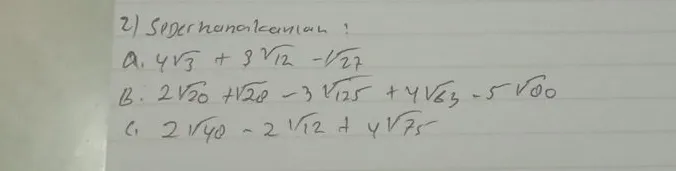 2) Sederhanakanlah :
A. 4√3 + 3√12 - √27
B. 2√20 + √28 - 3√125 + 4√63 - 5√80
C. 2√48 - 2√12 + 4√75